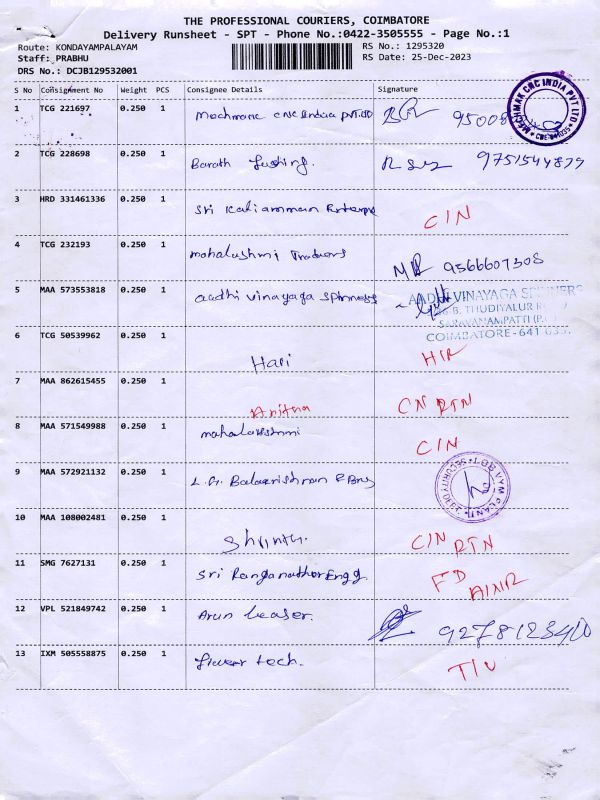 THE PROFESSIONAL COURIERS, COIMBATORE
Delivery Runsheet - SPT - Phone No.:0422-3505555 - Page No.:1
Route: KONDAYAMPALAYAM RS No.: 1295320
Staff: PRABHU RS Date: 25-Dec-2023
DRS No.: DCJB129532001
S No Consignment No Weight PCS Consignee Details Signature
1 TCG 221697 0.250 1 Mechmak CNC India PVT.LTD 95008
MECHMAK CNC INDIA PVT LTD
2 TCG 228698 0.250 1 Barath 9751544879
3 HRD 331461336 0.250 1 Sri Kaliamman Enterprs CIN
4 TCG 232193 0.250 1 mahalashmi Traders 9566607308
5 MAA 573553818 0.250 1 aadhi vinayaga spinners
AADHI VINAYAGA SPINNERS
THUDIYALUR
SARAVANAMPATTI (P.O)
COIMBATORE-641 035.
6 TCG 50539962 0.250 1 Hari HIR
7 MAA 862615455 0.250 1 Anitha CN RTN
8 MAA 571549988 0.250 1 mahalakshmi CIN
9 MAA 572921132 0.250 1 L.G. Balakrishnan & Bros
SECURITY DEPT. PLANT
10 MAA 108002481 0.250 1 CIN RTN
11 SMG 7627131 0.250 1 Sri Ranganathar Engg FD
12 VPL 521849742 0.250 1 Arun Leaser. 9278123400
13 IXM 505558875 0.250 1 tech.